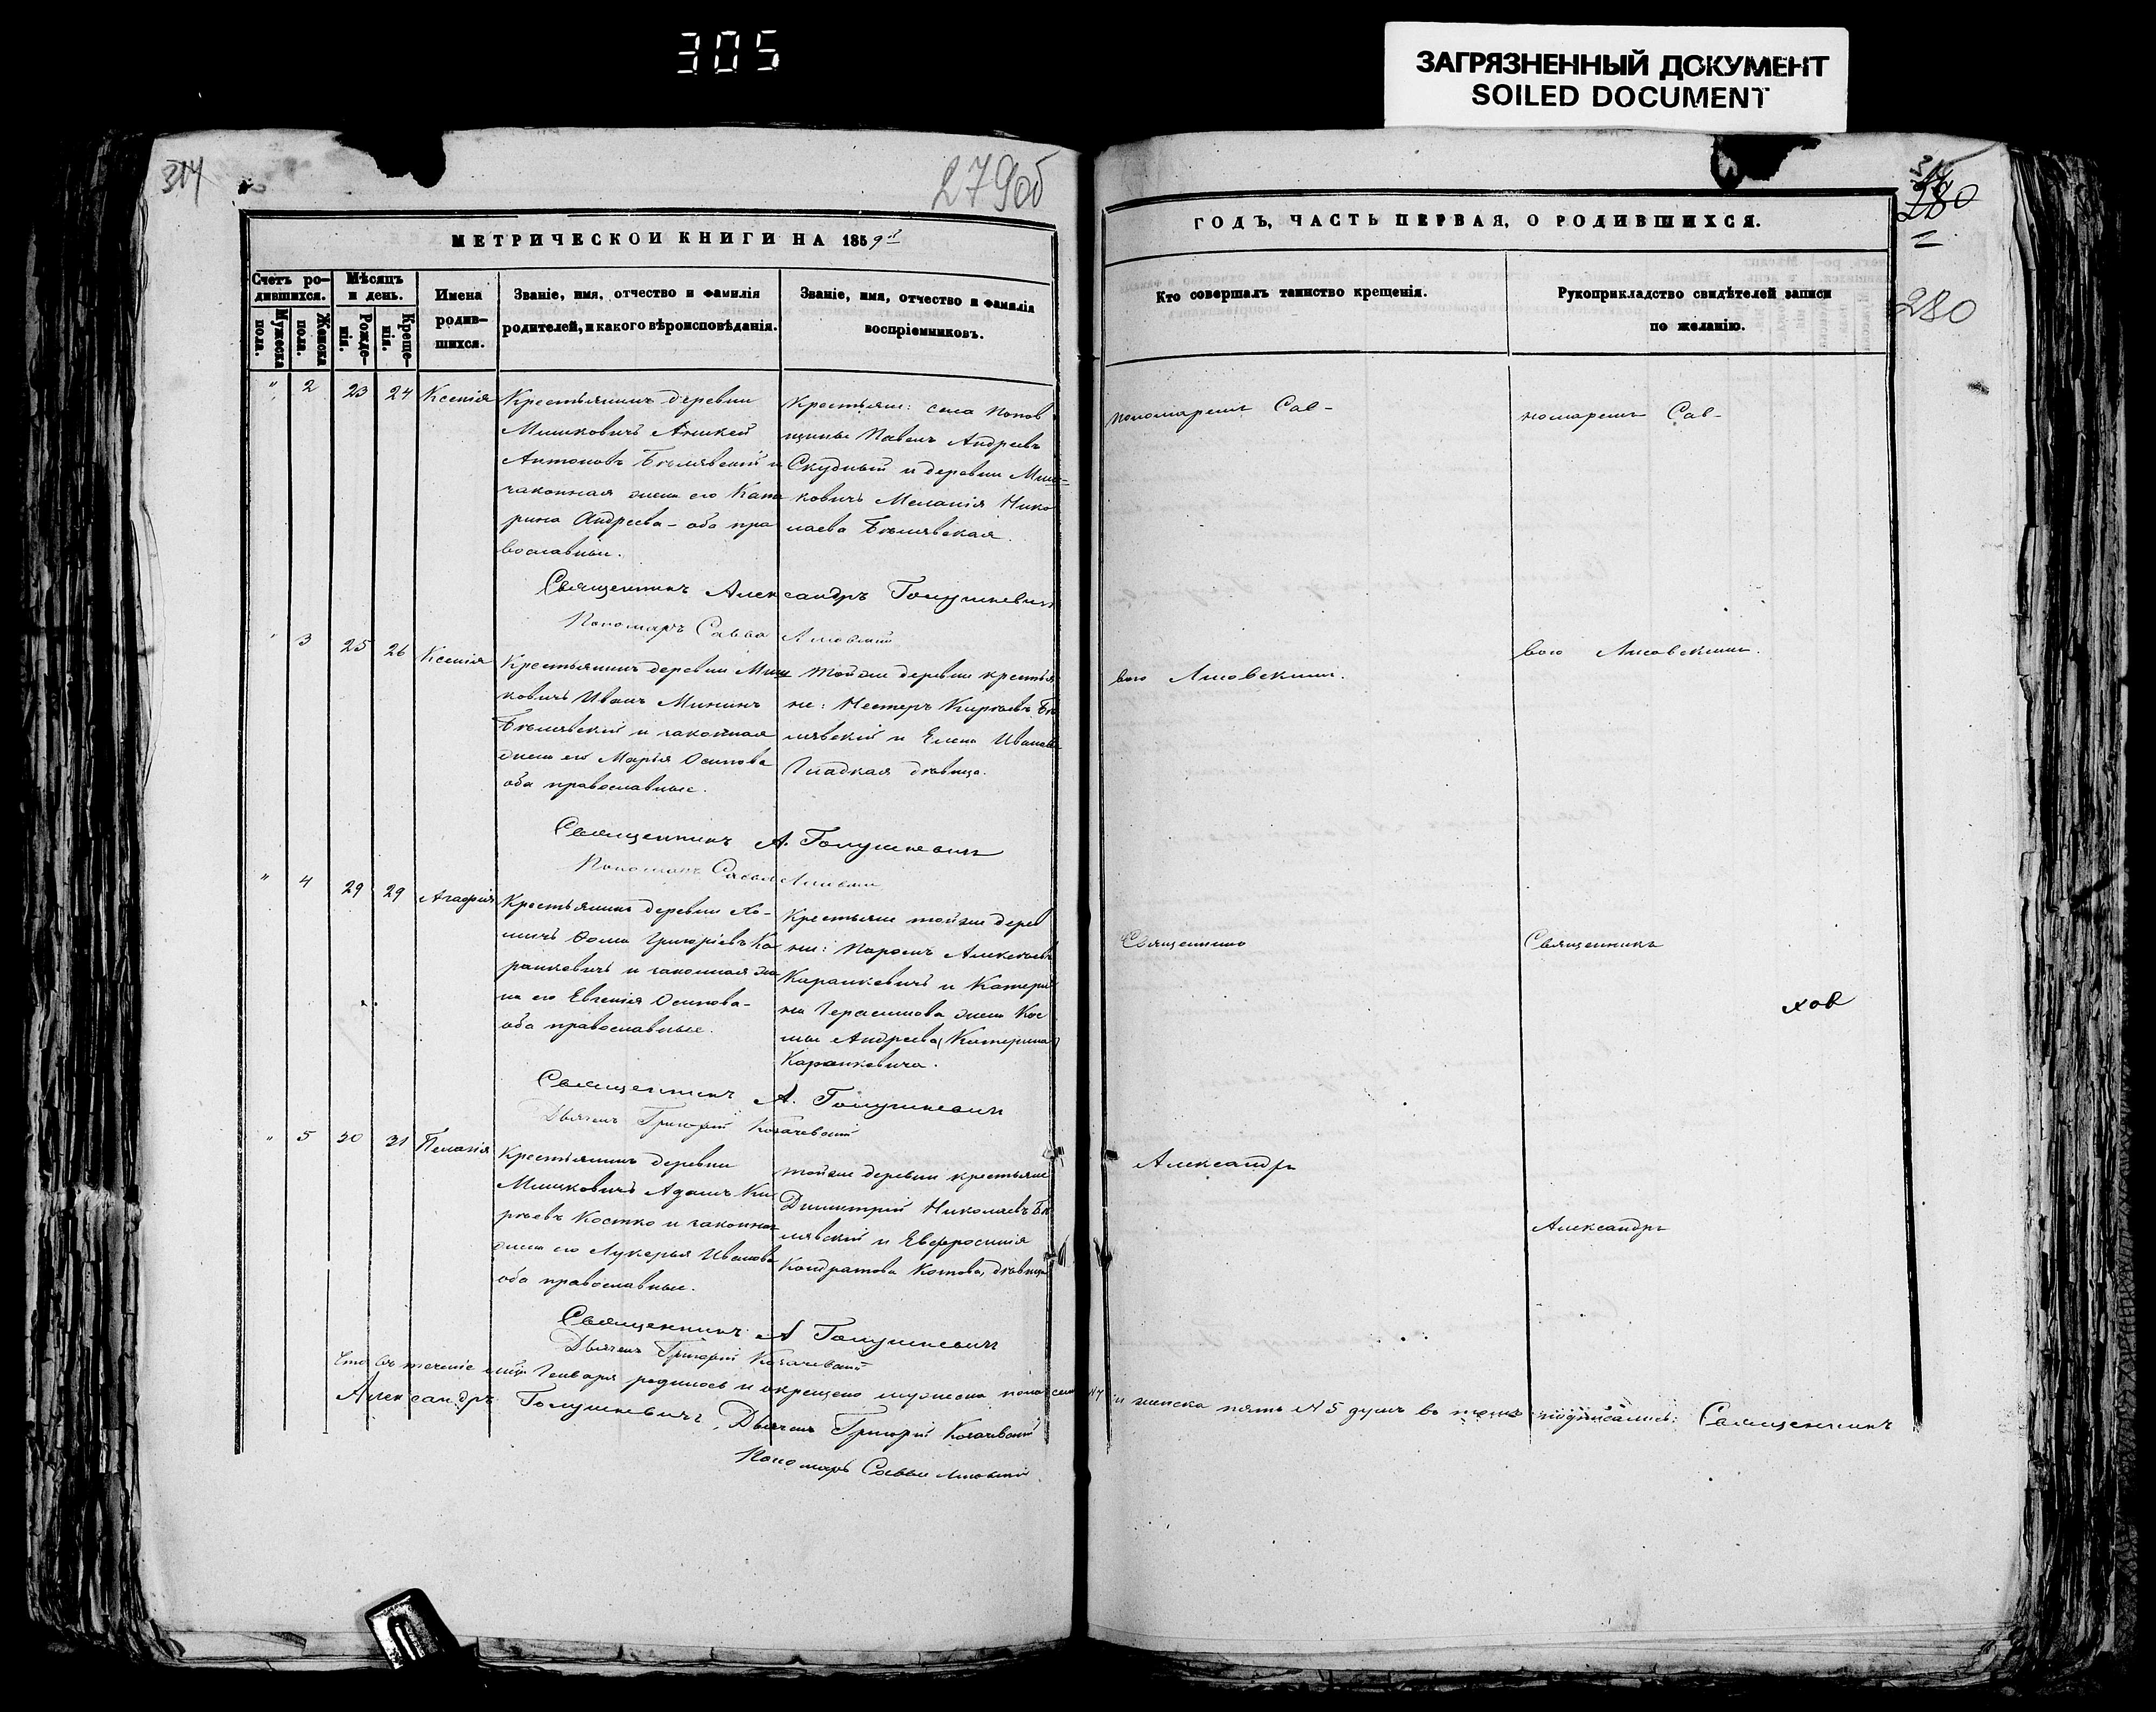 305
ЗАГРЯЗНЕННЫЙ ДОКУМЕНТ
SOILED DOCUMENT
314
279об
280
280
МЕТРИЧЕСКОЙ КНИГИ НА 1859й
Счетъ родившихся.
Мужеска пола.
Женска пола.
Мѣсяцъ и день.
Рожденія.
Крещенія.
Имена родившихся.
Званіе, имя, отчество и фамилія
родителей, и какого вѣроисповѣданія.
Званіе, имя, отчество и фамилія
воспріемниковъ.
" 2 23 24 Ксенія
Крестьянинъ деревни
Мишковичъ Аникей
Антоновъ Бѣлявскій и
законная жена его Кате
рина Андреева - оба пра
вославныи.
Крестьяне: села Попов
щины Павелъ Андреевъ
Скудный и деревни Миш-
ковичъ Меланія Нико
лаева Бѣлявская.
Священникъ Александръ Голушкевичъ
Пономарь Савва Лисовскій
" 3 25 26 Ксенія
Крестьянинъ деревни Миш
ковичъ Иванъ Мининъ
Бѣлявскій и законная
жена его Марья Осипова
оба православные.
Тойже деревни крестья
не: Нестеръ Кирѣевъ Бѣ
лявскій и Елена Иванова
Гладкая дѣвица.
Священникъ А. Голушкевичъ
Пономарь Савва Лисовскій
" 4 29 29 Агафія
Крестьянинъ деревни Хо-
мичъ Ѳома Григоріевъ Ка
ранкевичъ и законная же
на его Евгенія Осипова-
оба православные.
Крестьяне тойже дерев
ни: Парѳенъ Алексѣевъ
Каранкевичъ и Катери
на Герасимова жена Кос
мы Андреева (Катерина)
Каранкевича.
Священникъ А. Голушкевичъ
Дьячекъ Григорій Козачевскій
" 5 30 31 Пелагія
Крестьянинъ деревни
Мишковичъ Адамъ Ки
рѣевъ Костко и законная
жена его Лукерья Иванова
оба православные.
Тойже деревни крестьяне
Димитрій Николаевъ Бѣ
лявскій и Евфросинія
Кондратова Котова, дѣвица
Священникъ А Голушкевичъ
Дьячекъ Григорій Козачевскій
Что въ теченіе мца Генваря родилось и окрещено мужеска пола семь №7
Александръ Голушкевичъ, Дьячекъ Григорій Козачевскій
Пономарь Савва Лисовскій
ГОДЪ, ЧАСТЬ ПЕРВАЯ, О РОДИВШИХСЯ.
Кто совершалъ таинство крещенія.
Рукоприкладство свидѣтелей записи
по желанію.
пономаремъ Сав-
номаремъ Сав-
вою Лисовскимъ.
вою Лисовскимъ.
Священникъ
хов
Александръ
Александръ
и женска пять №5 душъ въ томъ подписались: Священникъ